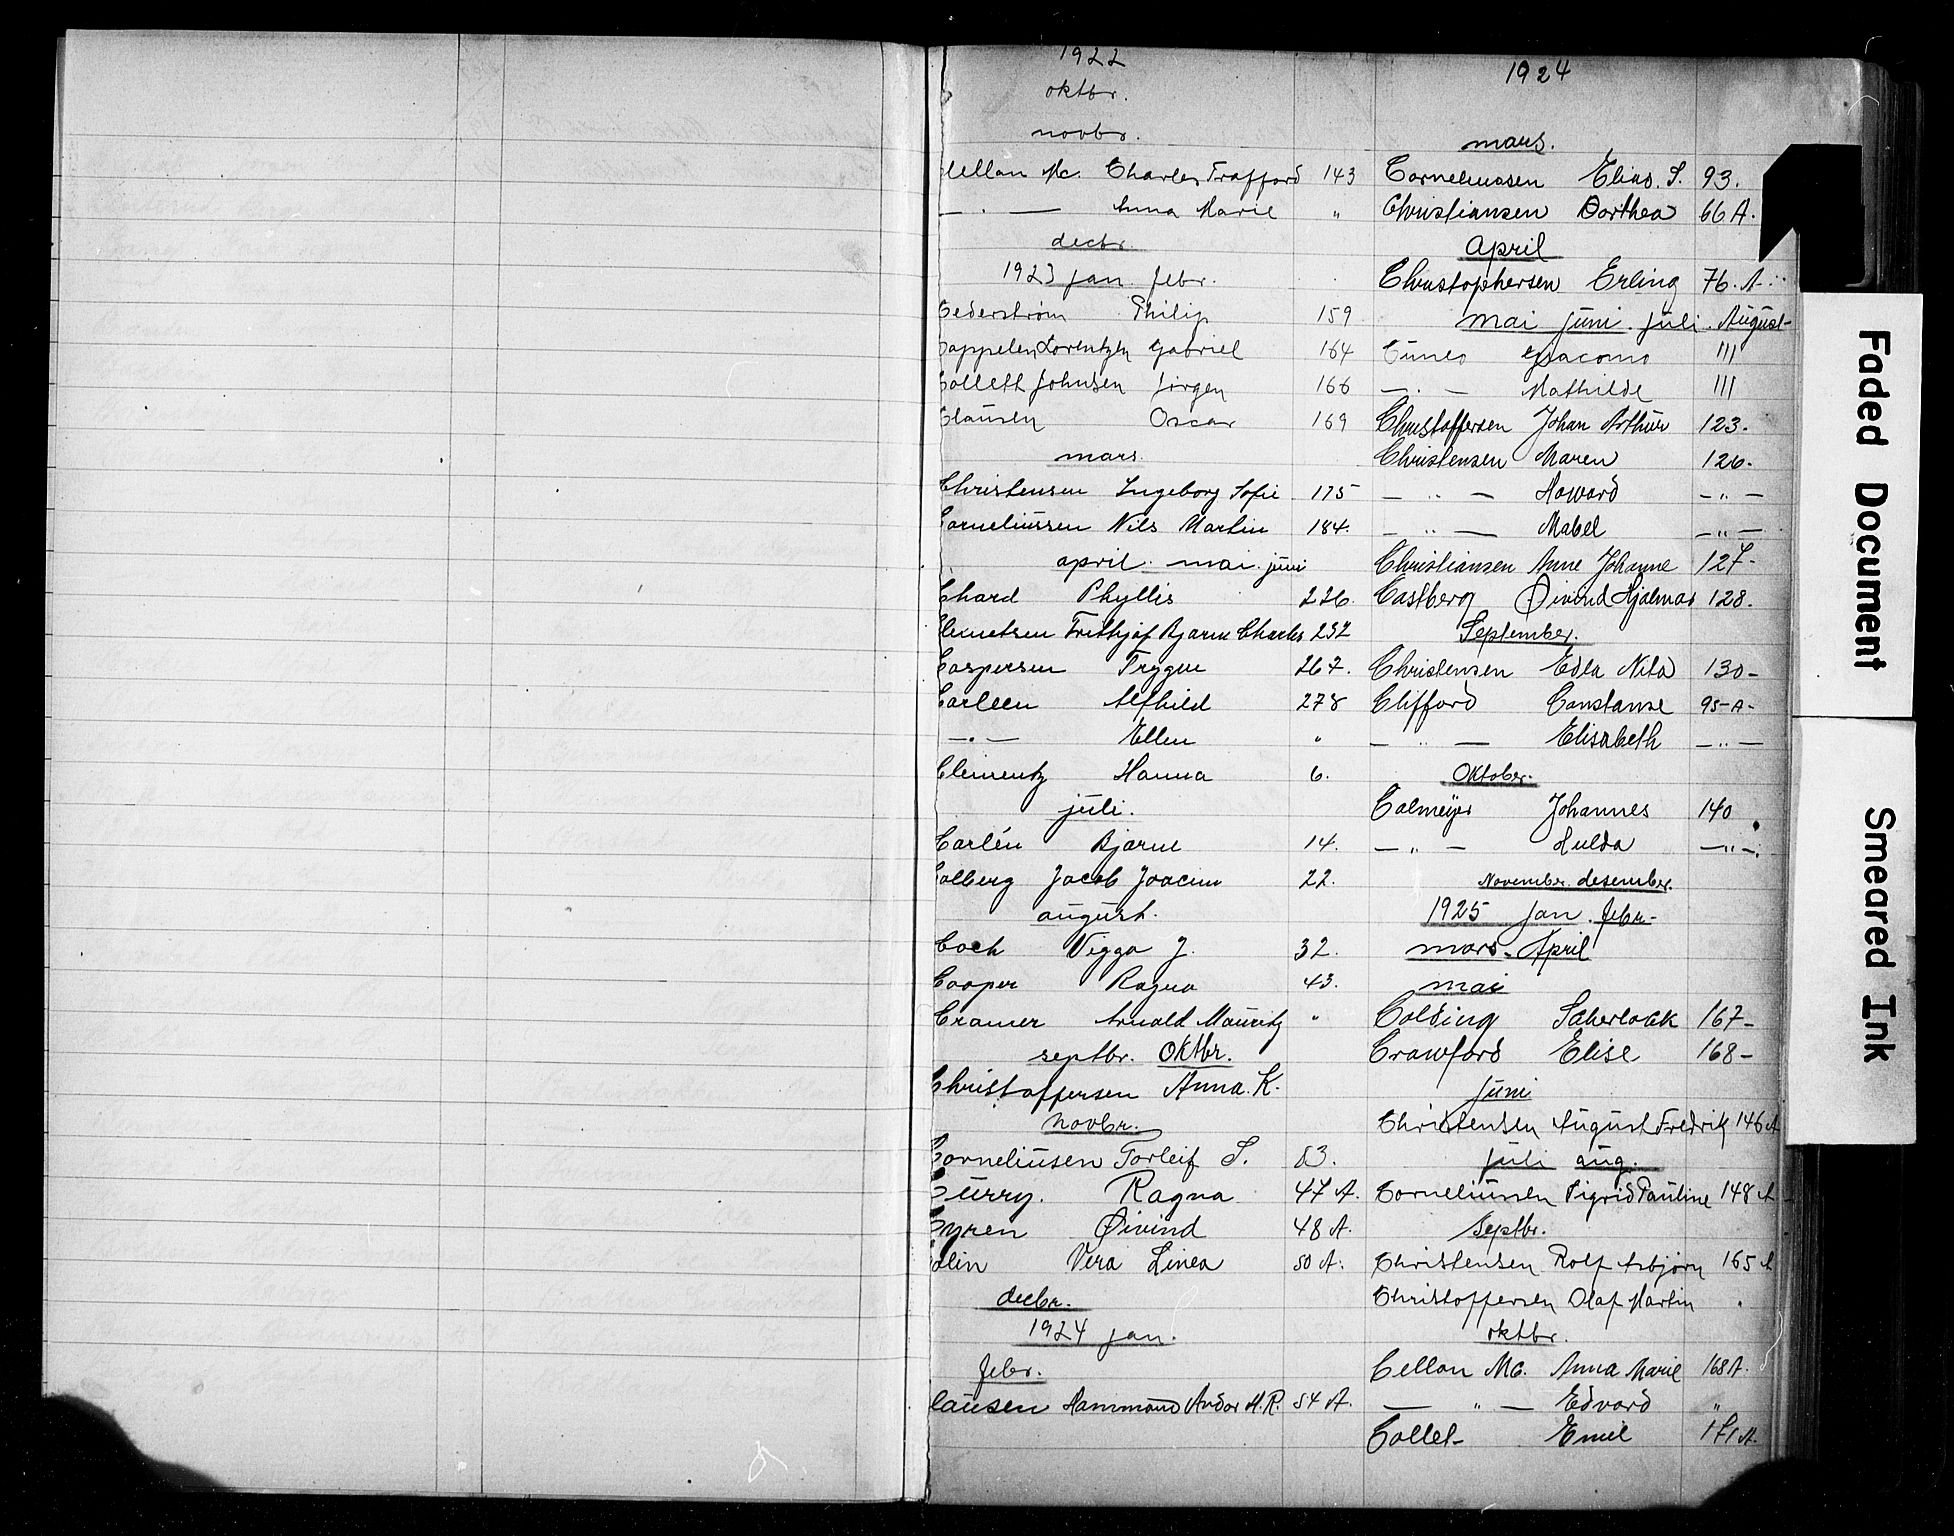 1922
oktbr.
novbr.
Cellan Mc. Charles Trafford 143
— . — Anna Marie "
decbr.
1923 jan. febr.
Cederstrøm Philip 159
Cappelen Lorentzen Gabriel 164
Collett Johnsen Jørgen 166
Clausen Oscar 169
mars
Christensen Ingeborg Sofie 175
Corneliussen Nils Martin 184.
april. mai. juni
Chard Phyllis 226.
Clemetsen Frithjof Bjarne Charles 232
Caspersen Trygve 267.
Carleen Alfhild 278
— . — Ellen "
Clementz Hanna 6.
juli.
Carlén Bjarne 14.
Colberg Jacob Joacim 22.
august.
Coch Viggo J. 32.
Cooper Ragna 43.
Cramer Arnold Mauritz "
septbr. Oktbr.
Christoffersen Anna. K.
Novbr.
Corneliusen Torleif S. 83.
Curry. Ragna 47 A.
Cyren Øivind 48 A.
Colin Vera Linea 50 A.
decbr.
1924 jan.
febr.
Clausen Hammond Andor H. R. 54 A.
1924
mars.
Corneliussen Elias. S. 93.
Christiansen Dorthea 66 A.
April
Christophersen Erling 76. A
mai juni. juli. August-
Cuneo Giacomo 111
— . — Mathilde 111
Christoffersen Johan Arthur 123.
Christensen Maren 126.
— " — Howard — " —
— " — Mabel — " —
Christiansen Anne Johanne 127-
Castberg Øivind Hjalmar 128.
September.
Christensen Edla Nita 130-
Clifford Constanse 95-A-
— " — Elisabeth — " —
Oktober.
Colmeyer Johannes 140
— " — Hulda — " —.
November. desember.
1925 jan. febr-
mars. April
mai
Colding Scherlock 167-
Crawford Elise 168-
juni
Christensen August Fredrik 146 A
juli aug.
Corneliussen Sigrid Pauline 148 A
septbr.
Christensen Rolf Asbjørn 165 A
Christoffersen Olaf Martin "
oktbr.
Cellan Mc. Anna Marie 168 A.
— " — Edvard "
Collet- Emil 171 A.
Faded Document
Smeared Ink